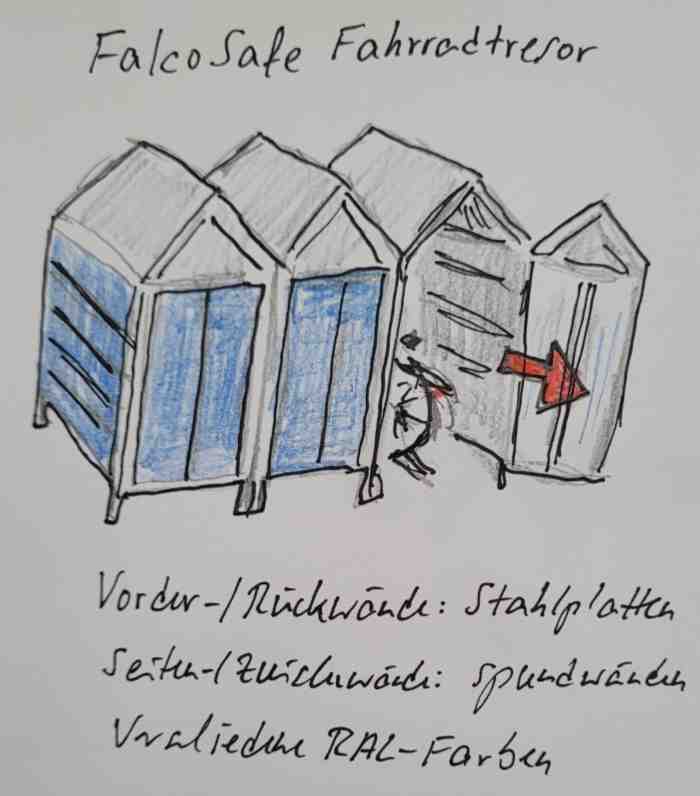 FalcoSafe Fahrradtresor
Vorder-/Rückwände: Stahlplatten
Seiten-/Zwischwände: Spundwänden
RAL-Farben